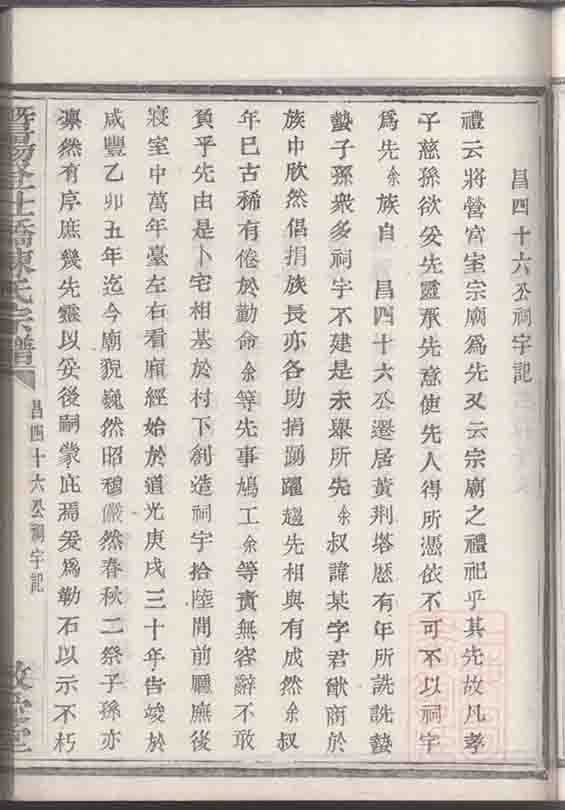 昌四十六公祠宇記
禮云將營宮室宗廟爲先又云宗廟之禮祀乎其先故凡孝
子慈孫欲妥先靈承先意使先人得所憑依不可不以祠宇
爲先余族自 昌四十六公遷居黃荆塔歷有年所詵詵蟄
蟄子孫衆多祠宇不建是未舉所先余叔諱某字君猷商於
族中欣然倡捐族長亦各助捐踴躍趨先相與有成然余叔
年已古稀有倦於勤命余等先事鳩工余等責無容辭不敢
負乎先由是卜宅相基於村下創造祠宇拾陸間前廳廡後
寢室中萬年臺左右看廂經始於道光庚戌三十年告竣於
咸豐乙卯五年迄今廟貌巍然昭穆儼然春秋二祭子孫亦
凜然有序庶幾先靈以妥後嗣蒙庇焉爰爲勒石以示不朽
暨陽 橋陳氏宗譜
昌四十六公祠宇記